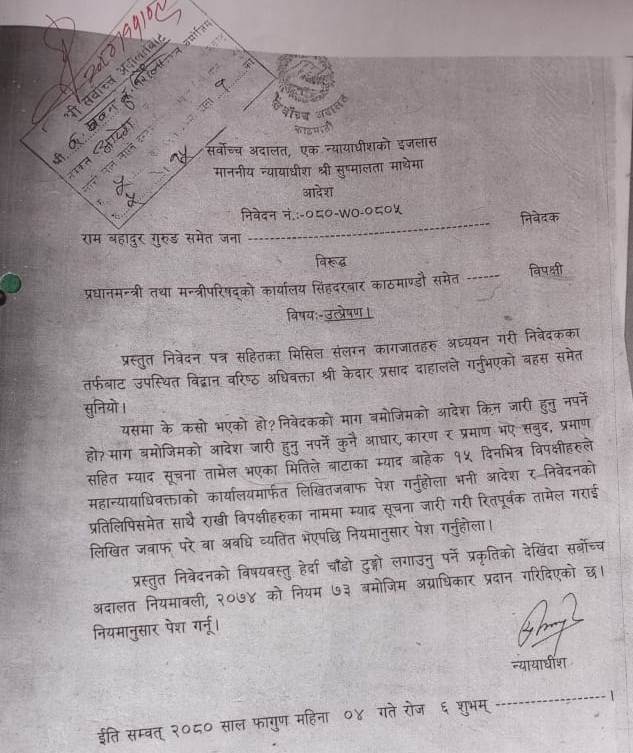 २०८०।११।०८
श्री सर्वोच्च अदालतबाट
सर्वोच्च अदालत
काठमाडौं
सर्वोच्च अदालत, एक न्यायाधीशको इजलास
माननीय न्यायाधीश श्री सुष्मालता माथेमा
आदेश
निवेदन नं.:-०८०-WO-०८०५
राम बहादुर गुरुङ समेत जना ---------------------------------------- निवेदक
विरूद्ध
प्रधानमन्त्री तथा मन्त्रीपरिषद्को कार्यालय सिंहदरबार काठमाण्डौ समेत ------ विपक्षी
विषयः-उत्प्रेषण।
प्रस्तुत निवेदन पत्र सहितका मिसिल संलग्न कागजातहरु अध्ययन गरी निवेदकका
तर्फबाट उपस्थित विद्वान वरिष्ठ अधिवक्ता श्री केदार प्रसाद दाहालले गर्नुभएको बहस समेत
सुनियो।
यसमा के कसो भएको हो? निवेदकको माग बमोजिमको आदेश किन जारी हुनु नपर्ने
हो? माग बमोजिमको आदेश जारी हुनु नपर्ने कुनै आधार, कारण र प्रमाण भए सबुद, प्रमाण
सहित म्याद सूचना तामेल भएका मितिले बाटाका म्याद बाहेक १५ दिनभित्र विपक्षीहरुले
महान्यायाधिवक्ताको कार्यालयमार्फत लिखितजवाफ पेश गर्नुहोला भनी आदेश र निवेदनको
प्रतिलिपिसमेत साथै राखी विपक्षीहरुका नाममा म्याद सूचना जारी गरी रितपूर्वक तामेल गराई
लिखित जवाफ परे वा अवधि व्यतित भएपछि नियमानुसार पेश गर्नुहोला।
प्रस्तुत निवेदनको विषयवस्तु हेर्दा चाँडो टुङ्गो लगाउनु पर्ने प्रकृतिको देखिंदा सर्वोच्च
अदालत नियमावली, २०७४ को नियम ७३ बमोजिम अग्राधिकार प्रदान गरिदिएको छ।
नियमानुसार पेश गर्नू।
न्यायाधीश
ईति सम्वत् २०८० साल फागुण महिना ०४ गते रोज ६ शुभम् -----------------।